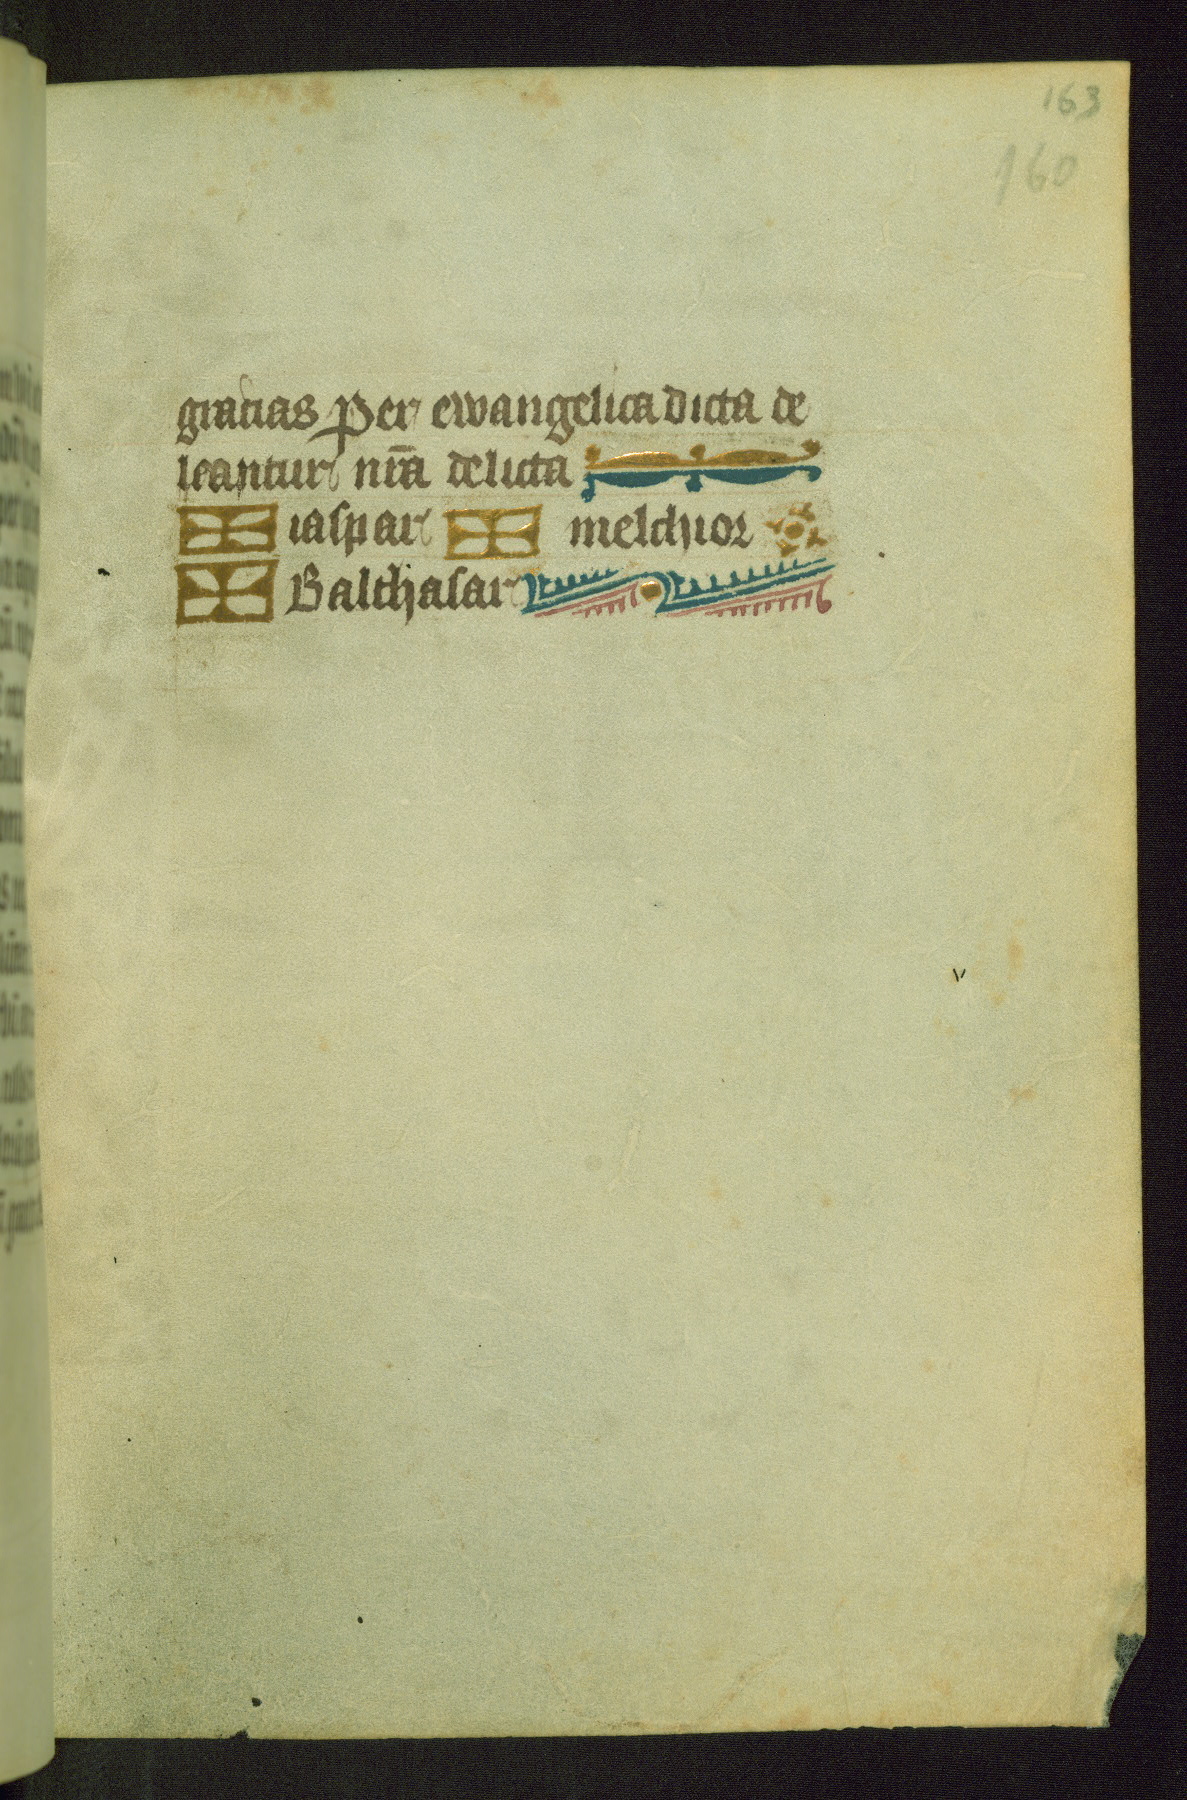 163
160
gracias Per ewangelica dicta de
leantur nr̄a delicta
iaspar melchior
Balthasar